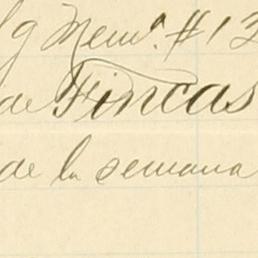 g Memª. #13
de Fincas
de la semana